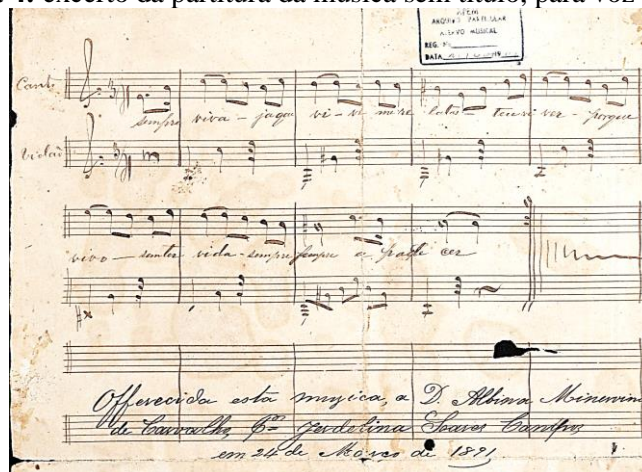 4: excerto da partitura da música sem título, para voz
ARQUIVO PARTICULAR
ACERVO MUSICAL
REG. Nº
DATA
Canto
sempre viva - jaque vi - ve - tens viver - porque
Violão
vivo - sentir vida - sempre sempre a pade cer
Offerecida esta muzica, a D. Albina Minervin
de Carvalho Soares
em 24 de Março de 1891